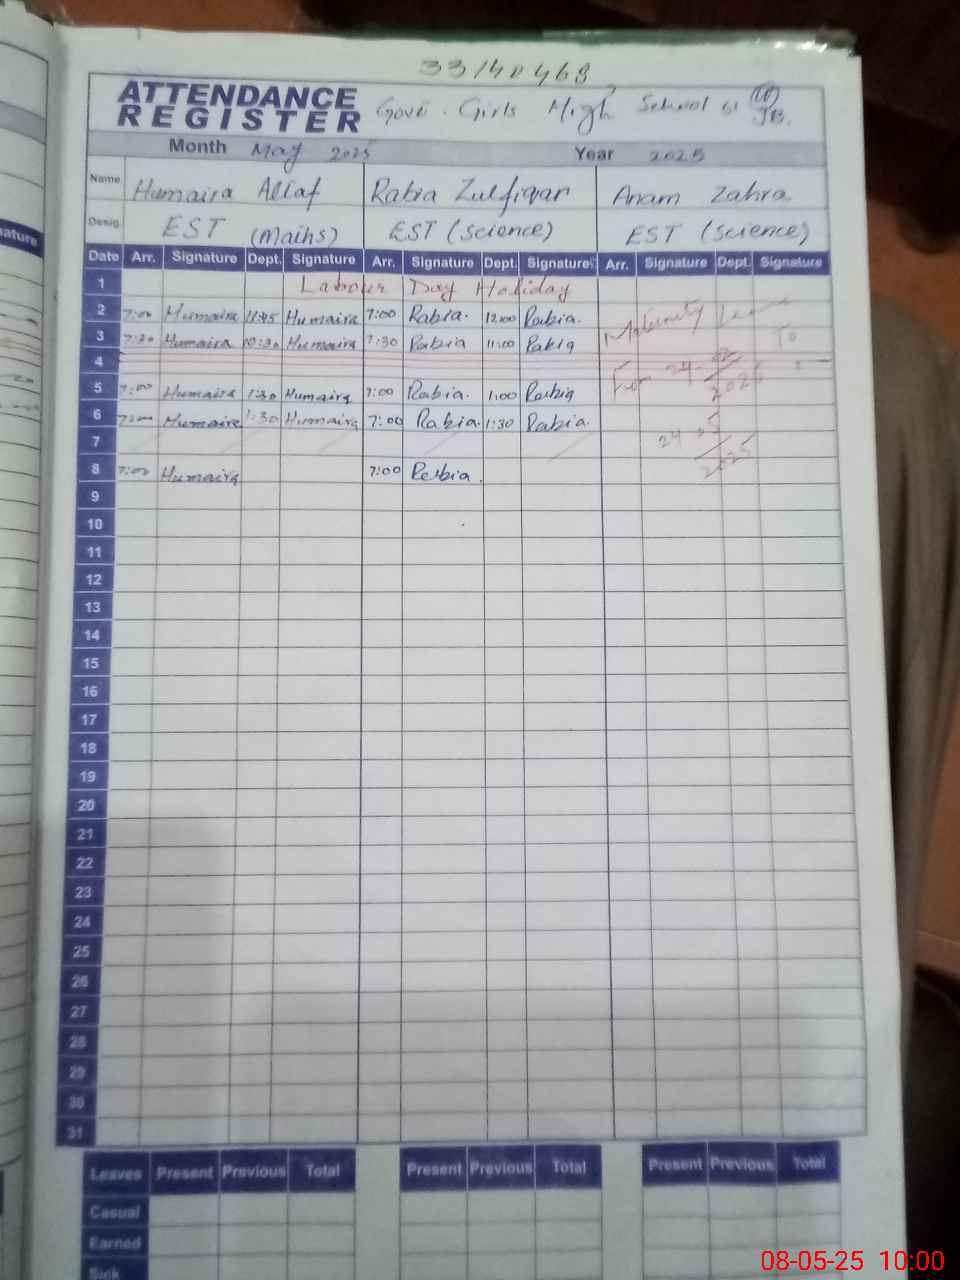 33140468
ATTENDANCE REGISTER Govt. Girls High School 61 JB.
Month May 2025 Year 2025
Name Humaira Altaf Rabia Zulfiqar Anam Zahra
Desig EST (Maths) EST (Science) EST (Science)
Date Arr. Signature Dept. Signature Arr. Signature Dept. Signature Arr. Signature Dept. Signature
1 Labour Day Holiday
2 7:00 Humaira 11:45 Humaira 7:00 Rabia. 12:00 Rabia. Maternity Leave
3 7:30 Humaira 10:30 Humaira 7:30 Rabia 11:00 Rabia To
4 24
5 7:00 Humaira 1:30 Humaira 7:00 Rabia. 1:00 Rabia 2025
6 7:00 Humaira 1:30 Humaira 7:00 Rabia. 1:30 Rabia.
7 24 05 2025
8 7:00 Humaira 7:00 Rabia.
9
10
11
12
13
14
15
16
17
18
19
20
21
22
23
24
25
26
27
28
29
30
31
Leaves Present Previous Total Present Previous Total Present Previous Total
Casual
Earned
Sick
08-05-25 10:00